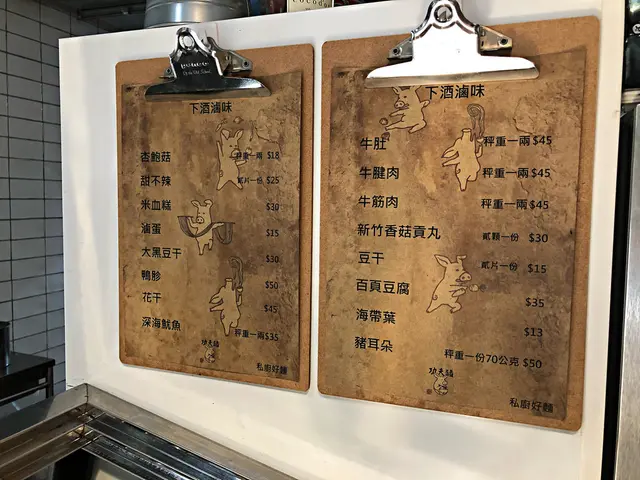 下酒滷味
杏鮑菇 秤重一兩 $18
甜不辣 貳片一份 $25
米血糕 $30
滷蛋 $15
大黑豆干 $30
鴨胗 $50
花干 $45
深海魷魚 秤重一兩$35
功夫豬
私廚好麵
下酒滷味
牛肚 秤重一兩$45
牛腱肉 秤重一兩$45
牛筋肉 秤重一兩$45
新竹香菇貢丸 貳顆一份 $30
豆干 貳片一份 $15
百頁豆腐 $35
海帶葉 $13
豬耳朵 秤重一份70公克 $50
功夫豬
私廚好麵